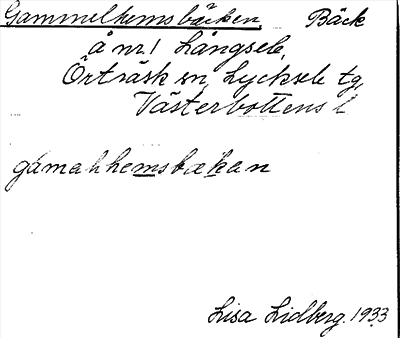 Gammelhemsbäcken Bäck
å nr 1 Långsele,
Örträsk sn, Lycksele tg,
Västerbottens l
gámahhemsbækan
Lisa Lidberg. 1933